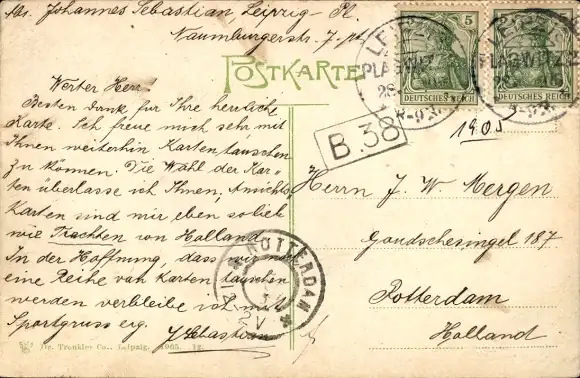 Abs. Johannes Sebastian Leipzig-Pl.
Naumburgerstr. 7. pt.
POSTKARTE
Werter Herr!
Besten Dank für Ihre herrliche
Karte. Ich freue mich sehr mit
Ihnen weiterhin Karten tauschen
zu können. Die Wahl der Kar-
ten überlasse ich Ihnen, Ansichts
Karten sind mir eben so lieb
wie Trachten von Holland.
In der Hoffnung, dass wir noch
eine Reihe von Karten tauschen
werden verbleibe ich mit
Sportgruss erg.
J. Sebastian
5
DEUTSCHES REICH
5
DEUTSCHES REICH
LEIPZIG
PLAGWITZ
LEIPZIG
PLAGWITZ
8-9
1905
B.38
Herrn J. W. Mergen
Goudschesingel 187
Rotterdam
Holland
ROTTERDAM
Dr. Trenkler Co., Leipzig. 1905.